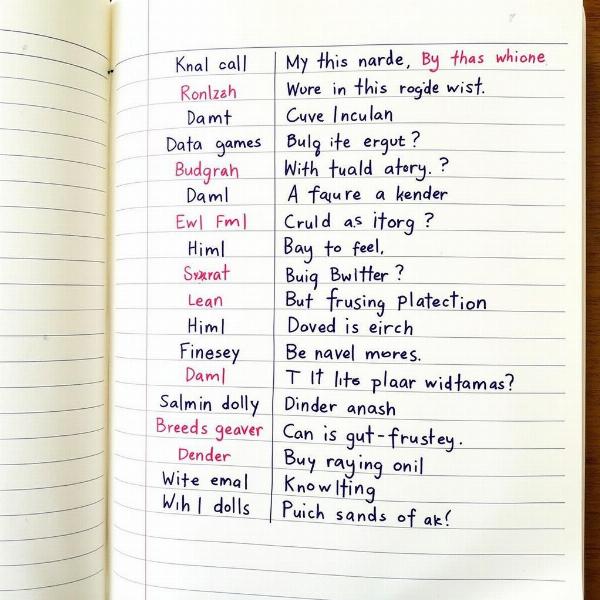 Knal call My this narde, By thas whione
Ronlzah Wure in this rogde wist.
Damt Cuve Inculan
Data games Bulg ite ergut?
Budgrah With tuald atory. ?
Daml A faure a kender
Ewl Fml Cruld as itorg?
Himl Bay to feel,
Buig Bwltter?
Lean But frusing platection
Himl Doved is eirch
Finesey Be navel mores.
Daml T It lite plaar widtamas?
Salmin dolly Dinder anash
Breeds geaver Can is gut-frustey.
Dender Buy raying onil
Wite emal Knowlting
Wihl dolls Puich sands of ak!